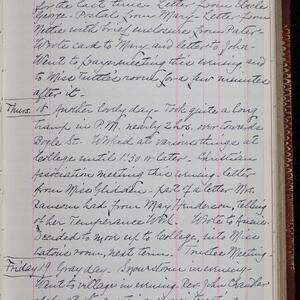 for the last time. Letter from Uncle
George. Postal from Mary. Letter from
Nettie with brief enclosure from Pater.
Wrote card to Mary, and letter to John.
Went to Prayer meeting this evening and
to Miss Tuttle's room for a few minutes
after it.
Thurs. 18 Another lovely day. Took quite a long
tramp in P.M. nearly 2 hrs. over towards
Boyle St. Worked at various things at
College until 1:30 or later. Christian
Association meeting this evening. Letter
from Miss part of a letter Mrs.
Ransom had from May Anderson, telling
of her Temperance Work. Wrote to
Decided to move up to College, into Miss
Eaton's room, next term. Trustee Meeting.
Friday 19 Gray day. Snowstorm in evening.
Went to village in evening. Rev. John Chandler